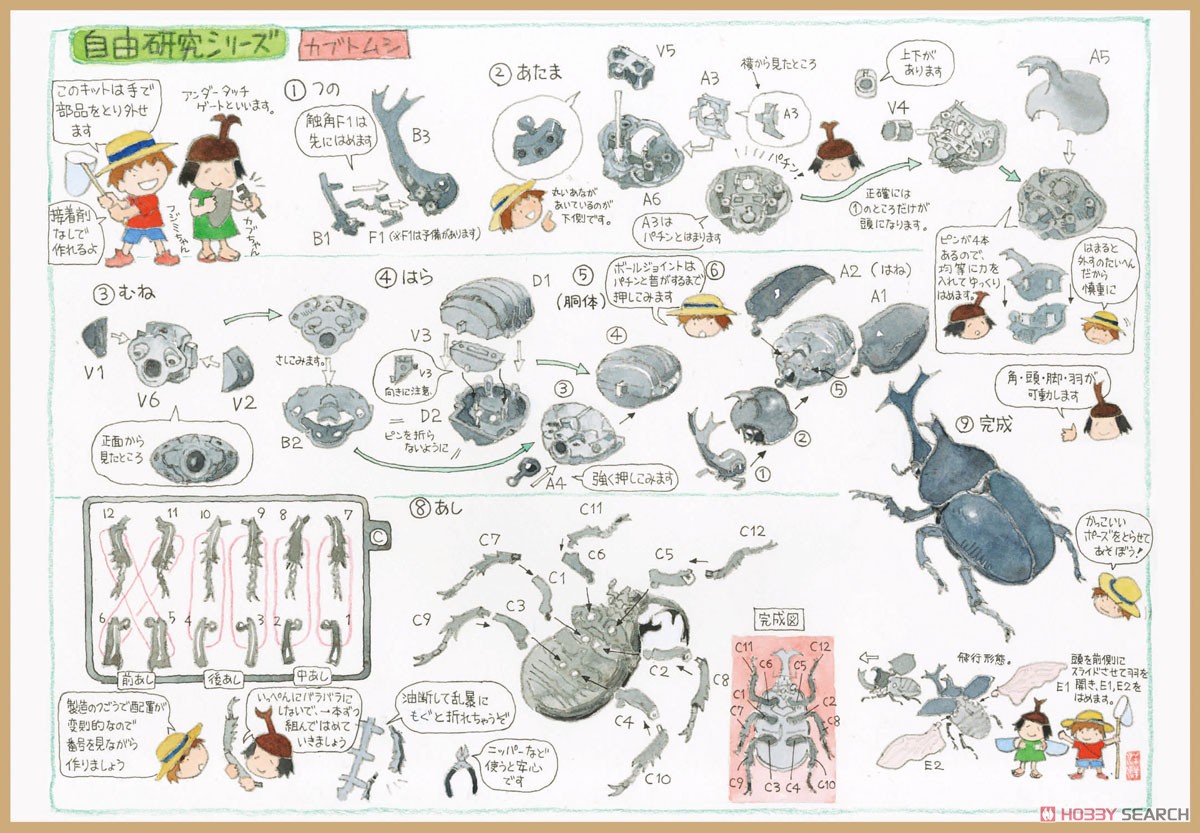 自由研究シリーズ
カブトムシ
このキットは手で
部品をとり外せ
ます
アンダータッチ
ゲートといいます。
接着剤
なしで
作れるよ
フジミちゃん
カブちゃん
① つの
触角F1は
先にはめます
B3
B1
F1 (※F1は予備があります)
② あたま
丸いあなが
あいているのが
下側です。
V5
A6
A3
横から見たところ
A3
A3は
パチンとはまります
パチン
上下が
あります
V4
正確には
①のところだけが
頭になります。
A5
ピンが4本
あるので、
均等に力を
入れてゆっくり
はめます。
はまると
外すのたいへん
だから
慎重に
③ むね
V1
V6
V2
正面から
見たところ
さしこみます。
B2
④ はら
D1
V3
V3
向きに注意
D2
ピンを折ら
ないように
⑤
(胴体)
ボールジョイントは
パチンと音がするまで
押してみます
④
③
A4
強く押してこみます
⑥
A2 (はね)
A1
⑤
②
①
角・頭・脚・羽が
可動します
⑨ 完成
かっこいい
ポーズをとらせて
あそぼう!
12
11
10
9
8
7
C
6
5
4
3
2
1
前あし
後あし
中あし
製造のつごうで配置が
変則的なので
番号を見ながら
作りましょう
いっぺんにバラバラに
しないで、一本ずつ
組んではめて
いきましょう
油断して乱暴に
もぐと折れちゃうぞ
ニッパーなど
使うと安心
です
⑧ あし
C11
C12
C7
C6
C5
C1
C3
C9
C2
C8
C4
C10
完成図
C11
C12
C6
C5
C1
C2
C7
C8
C9
C3
C4
C10
飛行形態。
頭を前側に
スライドさせて羽を
開き、E1,E2を
はめます。
E1
E2
HOBBY SEARCH